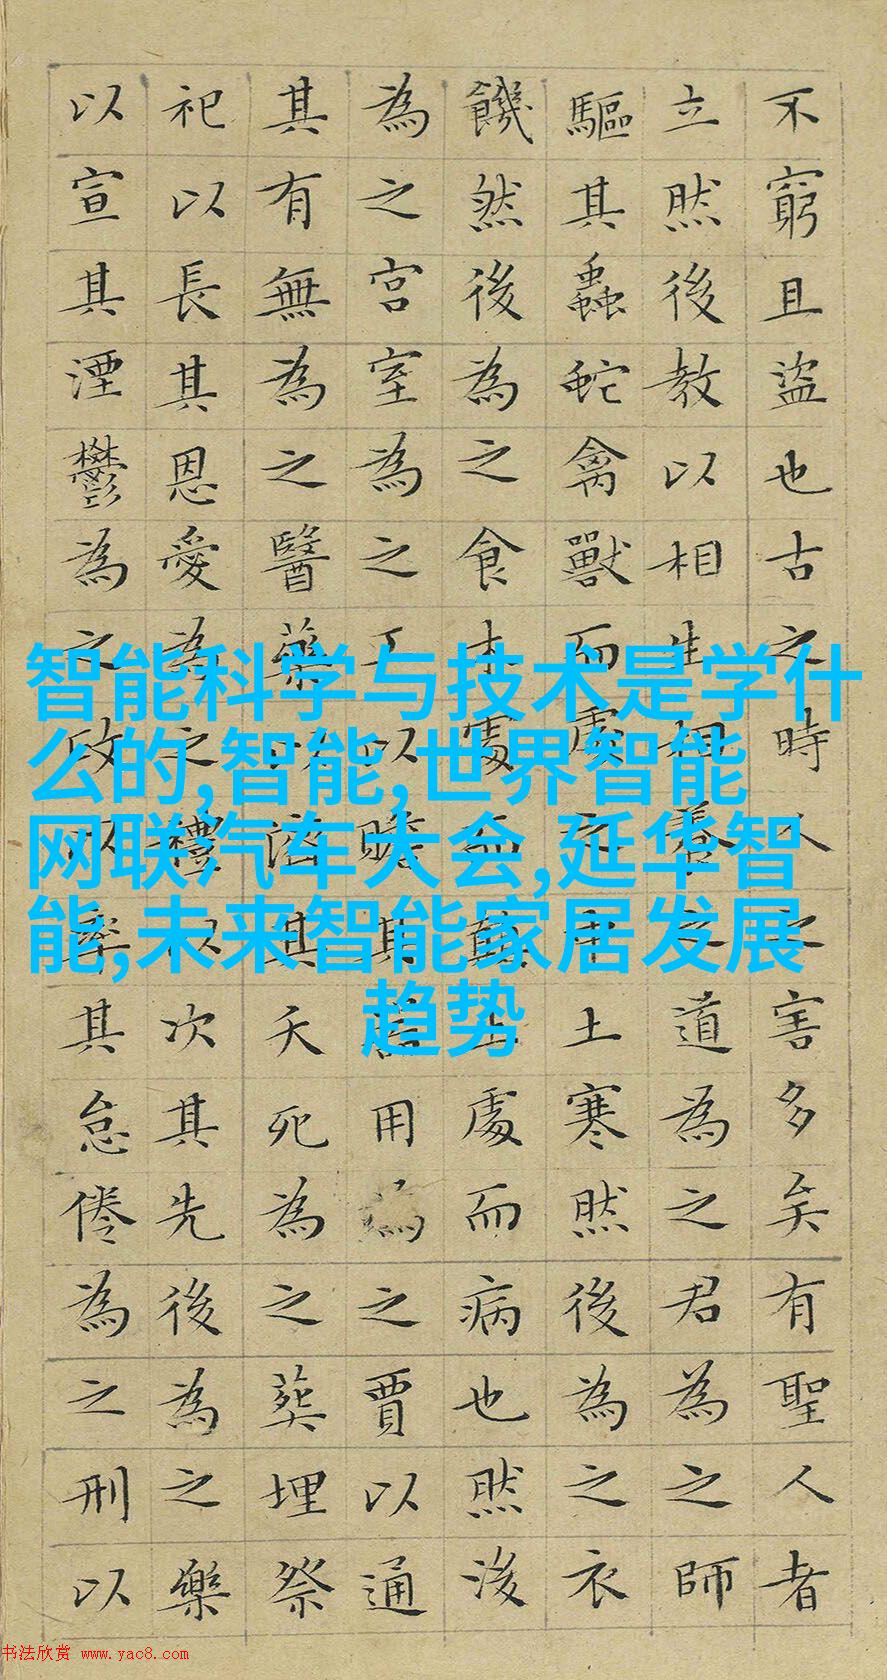 不窮且盜也古之時人之害多矣有聖人者
立然後教以相生相養之道為之君為之師
驅其蟲蛇禽獸而處之中土寒然後為之衣
饑然後為之食木處而顛土處而病也然後
為之宮室為之工以贍其器用為之賈以通
其有無為之醫藥以濟其夭死為之葬埋祭
祀以長其恩愛為之禮以次其先後為之樂
以宣其湮鬱為之政以率其怠倦為之刑以
智能科学与技术是学什
么的,智能,世界智能
网联汽车大会,延华智
能,未来智能家居发展
趋势
书法欣赏 www.yac8.com